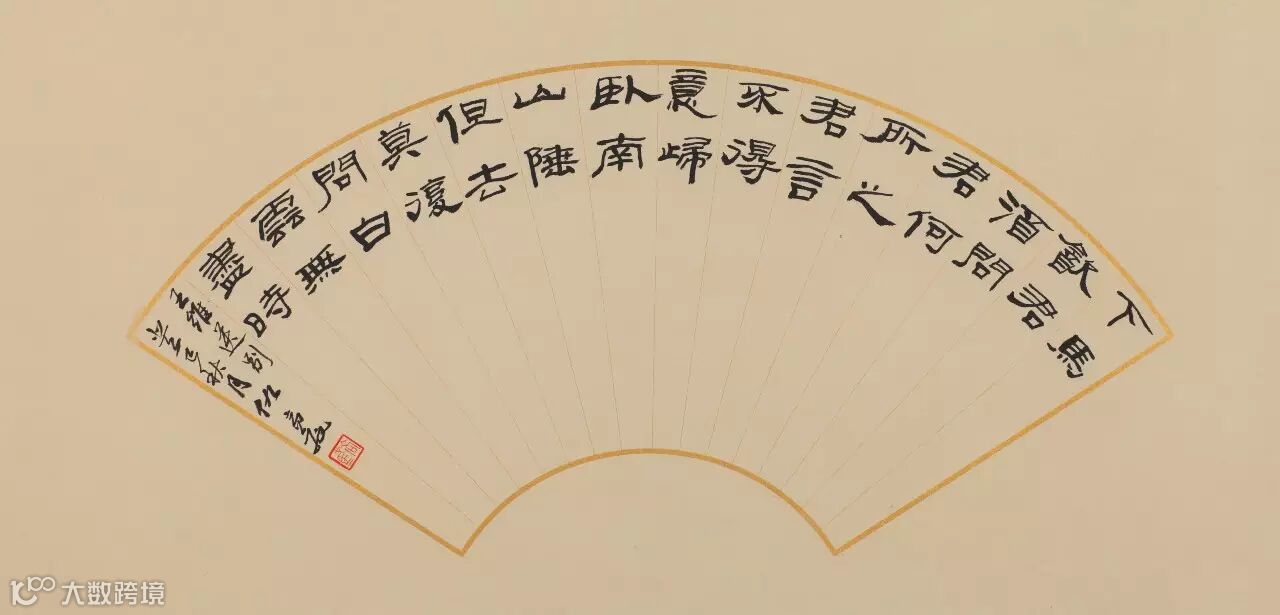 下馬
飲君
酒問
君何
所之
君言
不得
意歸
臥南
山陲
但去
莫復
問白
雲無
盡時
王維送别
辛巳秋月
大数跨境